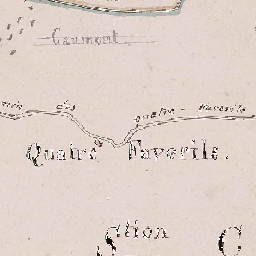 Caumont.
des quatre - Favorite
Quatre Favorite.
Stion C